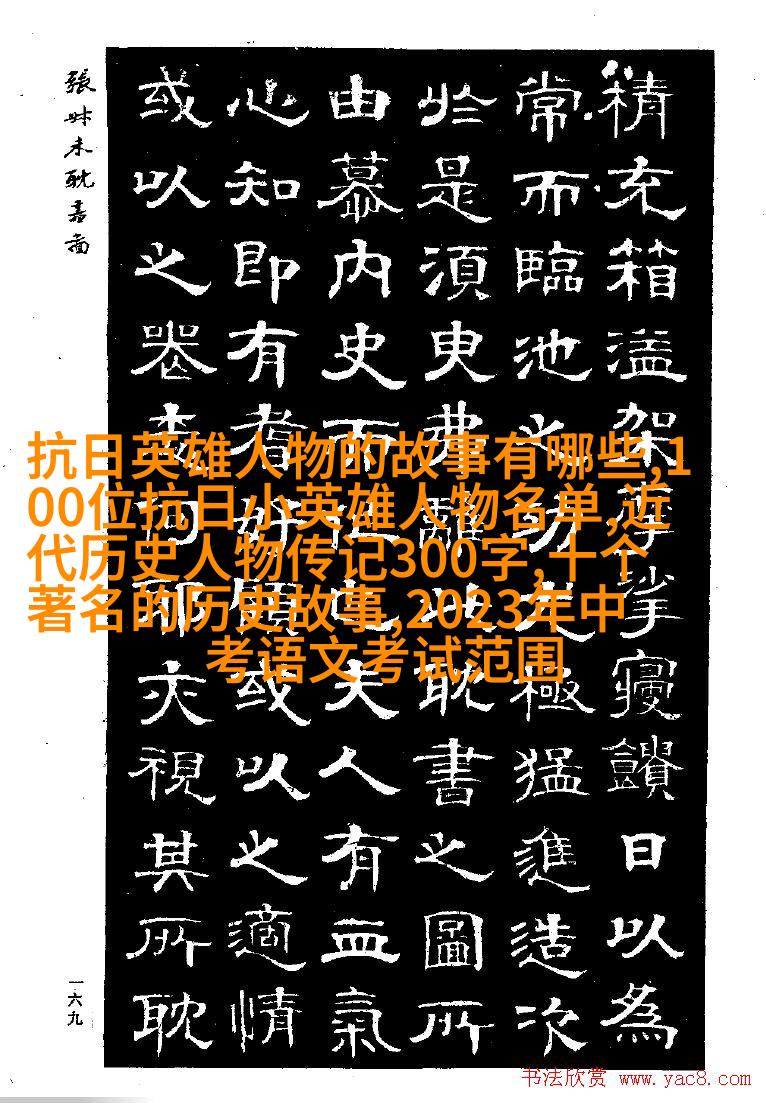 積充箱溢架摩挲寢饋日以為
常而臨池之功尤極猛進造次
於是須臾弗離此耽書之圖所
由慕內史而作也夫人有血氣
心知即有耆好顧或以之適情
或以之喪志何耶亦視其所耽
張叔未耽書圖
一六九
抗日英雄人物的故事有哪些,1
00位抗日小英雄人物名单,近
代历史人物传记300字,十个
著名的历史故事,2023年中
考语文考试范围
书法欣赏 www.yac8.com